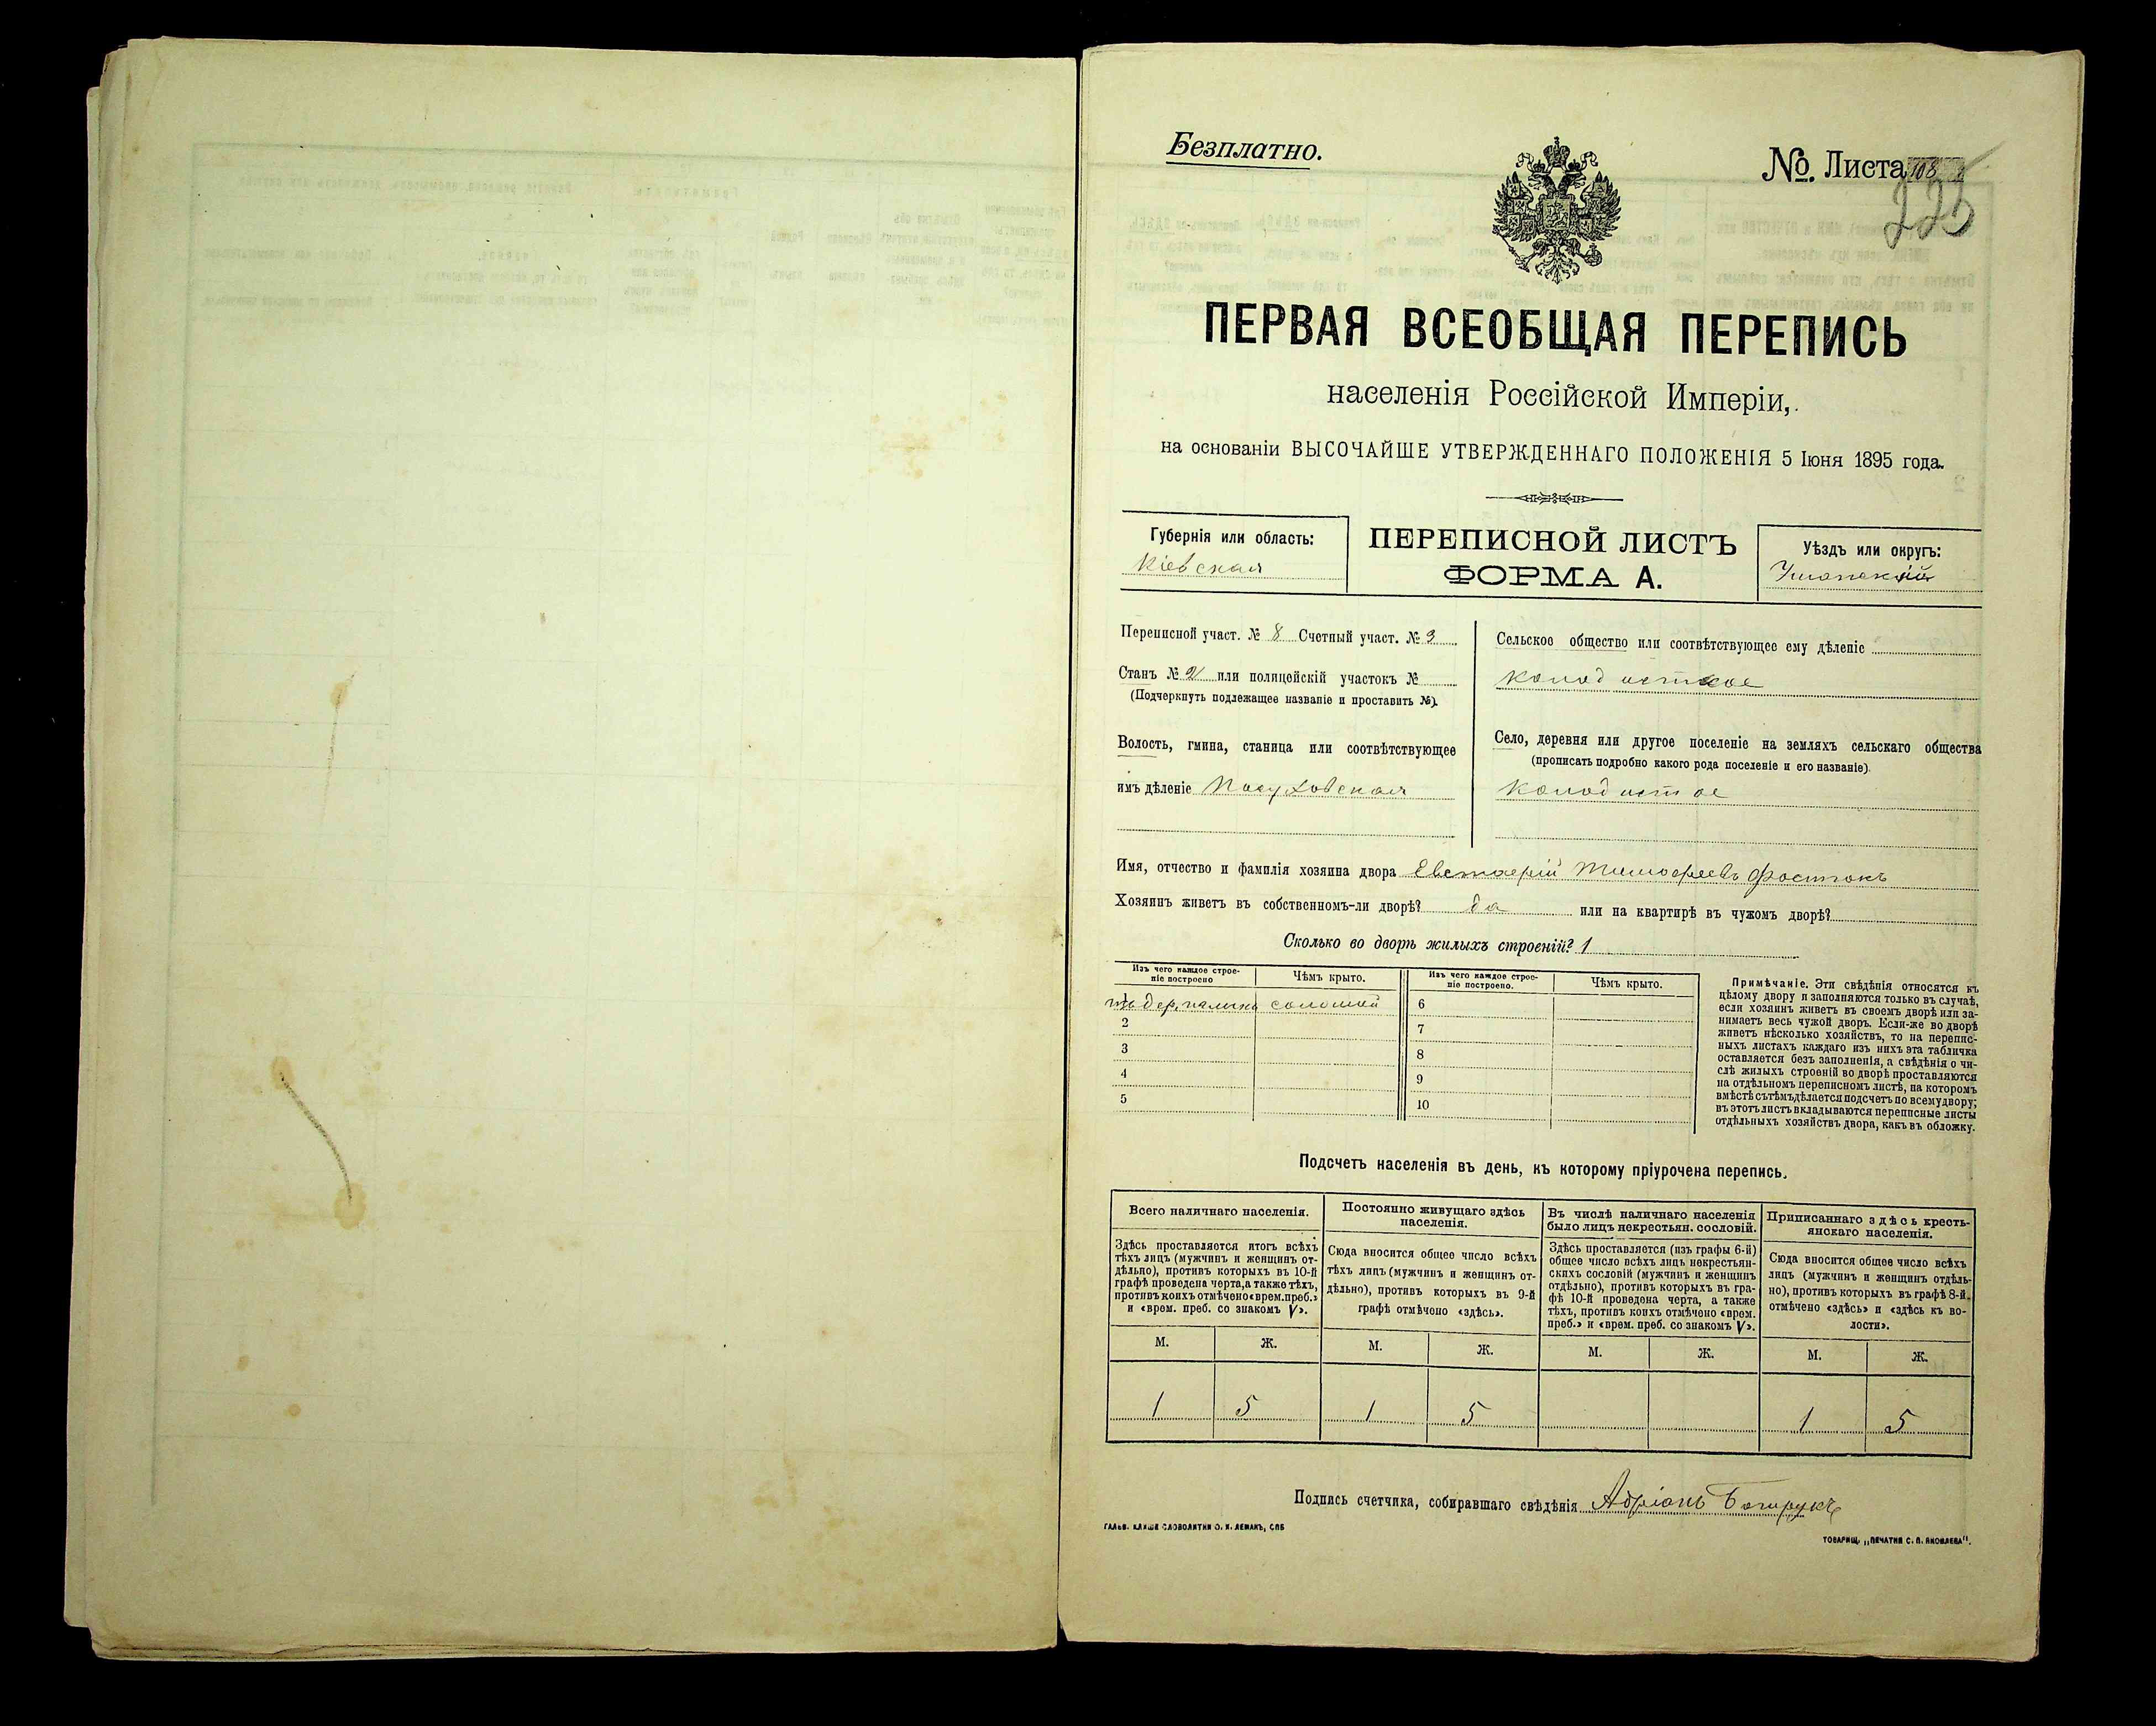 Безплатно.
№. Листа 108
225
ПЕРВАЯ ВСЕОБЩАЯ ПЕРЕПИСЬ
населенія Россійской Имперіи,
на основаніи ВЫСОЧАЙШЕ УТВЕРЖДЕННАГО ПОЛОЖЕНІЯ 5 Іюня 1895 года.
Губернія или область:
Кіевская
ПЕРЕПИСНОЙ ЛИСТЪ
ФОРМА А.
Уѣздъ или округъ:
Уманскій
Переписной участ. № 8 Счетный участ. № 3
Станъ № 2 или полицейскій участокъ №
(Подчеркнуть подлежащее названіе и проставить №).
Волость, гмина, станица или соотвѣтствующее
имъ дѣленіе Посуховская
Сельское общество или соотвѣтствующее ему дѣленіе
Колодистое
Село, деревня или другое поселеніе на земляхъ сельскаго общества
(прописать подробно какого рода поселеніе и его названіе).
Колодистое
Имя, отчество и фамилія хозяина двора Тимофеевъ
Хозяинъ живетъ въ собственномъ-ли дворѣ? да или на квартирѣ въ чужомъ дворѣ?
Сколько во дворѣ жилыхъ строеній? 1
Изъ чего каждое строе-
ніе построено
Чѣмъ крыто.
Изъ чего каждое строе-
ніе построено.
Чѣмъ крыто.
соломой
6
2
7
3
8
4
9
5
10
Примѣчаніе. Эти свѣдѣнія относятся къ
цѣлому двору и заполняются только въ случаѣ,
если хозяинъ живетъ въ своемъ дворѣ или за-
нимаетъ весь чужой дворъ. Если-же во дворѣ
живетъ нѣсколько хозяйствъ, то на перепис-
ныхъ листахъ каждаго изъ нихъ эта табличка
оставляется безъ заполненія, а свѣдѣнія о чи-
слѣ жилыхъ строеній во дворѣ проставляются
на отдѣльномъ переписномъ листѣ, на которомъ
вмѣстѣ съ тѣмъ дѣлается подсчетъ по всему двору;
въ этотъ листъ вкладываются переписные листы
отдѣльныхъ хозяйствъ двора, какъ въ обложку.
Подсчетъ населенія въ день, къ которому пріурочена перепись.
Всего наличнаго населенія.
Здѣсь проставляется итогъ всѣхъ
тѣхъ лицъ (мужчинъ и женщинъ от-
дѣльно), противъ которыхъ въ 10-й
графѣ проведена черта, а также тѣхъ,
противъ коихъ отмѣчено «врем. преб.»
и «врем. преб. со знакомъ V».
Постоянно живущаго здѣсь
населенія.
Сюда вносится общее число всѣхъ
тѣхъ лицъ (мужчинъ и женщинъ от-
дѣльно), противъ которыхъ въ 9-й
графѣ отмѣчено «здѣсь».
Въ числѣ наличнаго населенія
было лицъ некрестьян. сословій.
Здѣсь проставляется (изъ графы 6-й)
общее число всѣхъ лицъ некрестьян-
скихъ сословій (мужчинъ и женщинъ
отдѣльно), противъ которыхъ въ гра-
фѣ 10-й проведена черта, а также
тѣхъ, противъ коихъ отмѣчено «врем.
преб.» и «врем. преб. со знакомъ V».
Приписаннаго здѣсь кресть-
янскаго населенія.
Сюда вносится общее число всѣхъ
лицъ (мужчинъ и женщинъ отдѣль-
но), противъ которыхъ въ графѣ 8-й
отмѣчено «здѣсь» и «здѣсь къ во-
лости».
М. Ж. М. Ж. М. Ж. М. Ж.
1 5 1 5 1 5
Подпись счетчика, собиравшаго свѣдѣнія Адріанъ
ГАЛЬВ. КЛИШЕ СЛОВОЛИТНИ О. И. ЛЕМАНЪ, СПБ
ТОВАРИЩ. „ПЕЧАТНЯ С. П. ЯКОВЛЕВА".